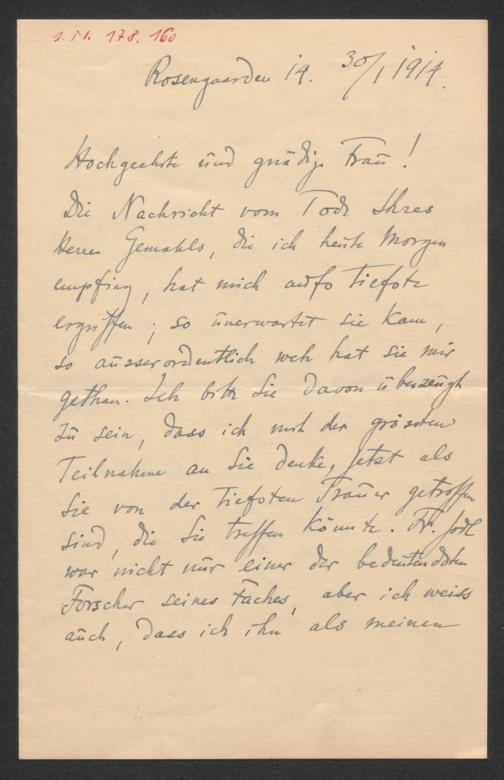 178. 160
Rosengaarden 14. 30/1 1914.
Hochgeehrte und gnädige Frau!
Die Nachricht vom Tode Ihres
Herrn Gemahls, die ich heute Morgen
empfing, hat mich aufs Tiefste
ergriffen; so unerwartet sie kam,
so ausserordentlich weh hat sie mir
gethan. Ich bitte Sie davon überzeugt
zu sein, dass ich mit der grössten
Teilnahme an Sie denke, jetzt als
Sie von der tiefsten Trauer getroffen
sind, die Sie treffen könnte. Fr. Jodl
war nicht nur einer der bedeutendsten
Forscher seines Faches, aber ich weiss
auch, dass ich ihn als meinen